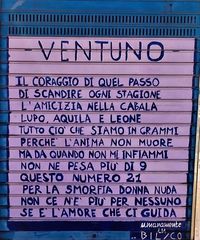 VENTUNO
IL CORAGGIO DI QUEL PASSO
DI SCANDIRE OGNI STAGIONE
L'AMICIZIA NELLA CABALA
LUPO, AQUILA E LEONE
TUTTO CIO' CHE SIAMO IN GRAMMI
PERCHE' L'ANIMA NON MUORE
MA DA QUANDO NON MI INFIAMMI
NON NE PESA PIU' DI 9
QUESTO NUMERO 21
PER LA SMORFIA DONNA NUDA
NON CE N'E' PIU' PER NESSUNO
SE E' L'AMORE CHE CI GUIDA
umanamente
BIL/CO